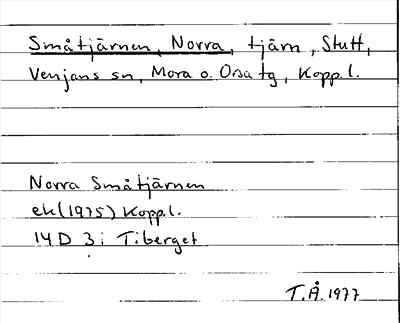 Småtjärnen, Norra, tjärn, Stutt,
Venjans sn, Mora o. Orsa tg, Kopp.l.
Norra Småtjärnen
ek(1975) Kopp.l.
14 D 3 i Tiberget
T.Å. 1977